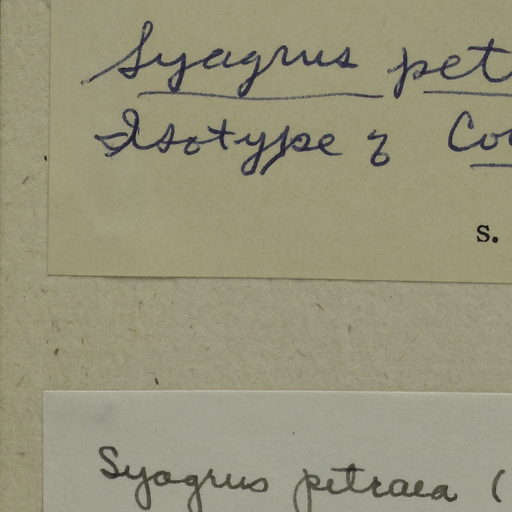 Syagrus pet
Isotype of Co
S.
Syagrus petraea (